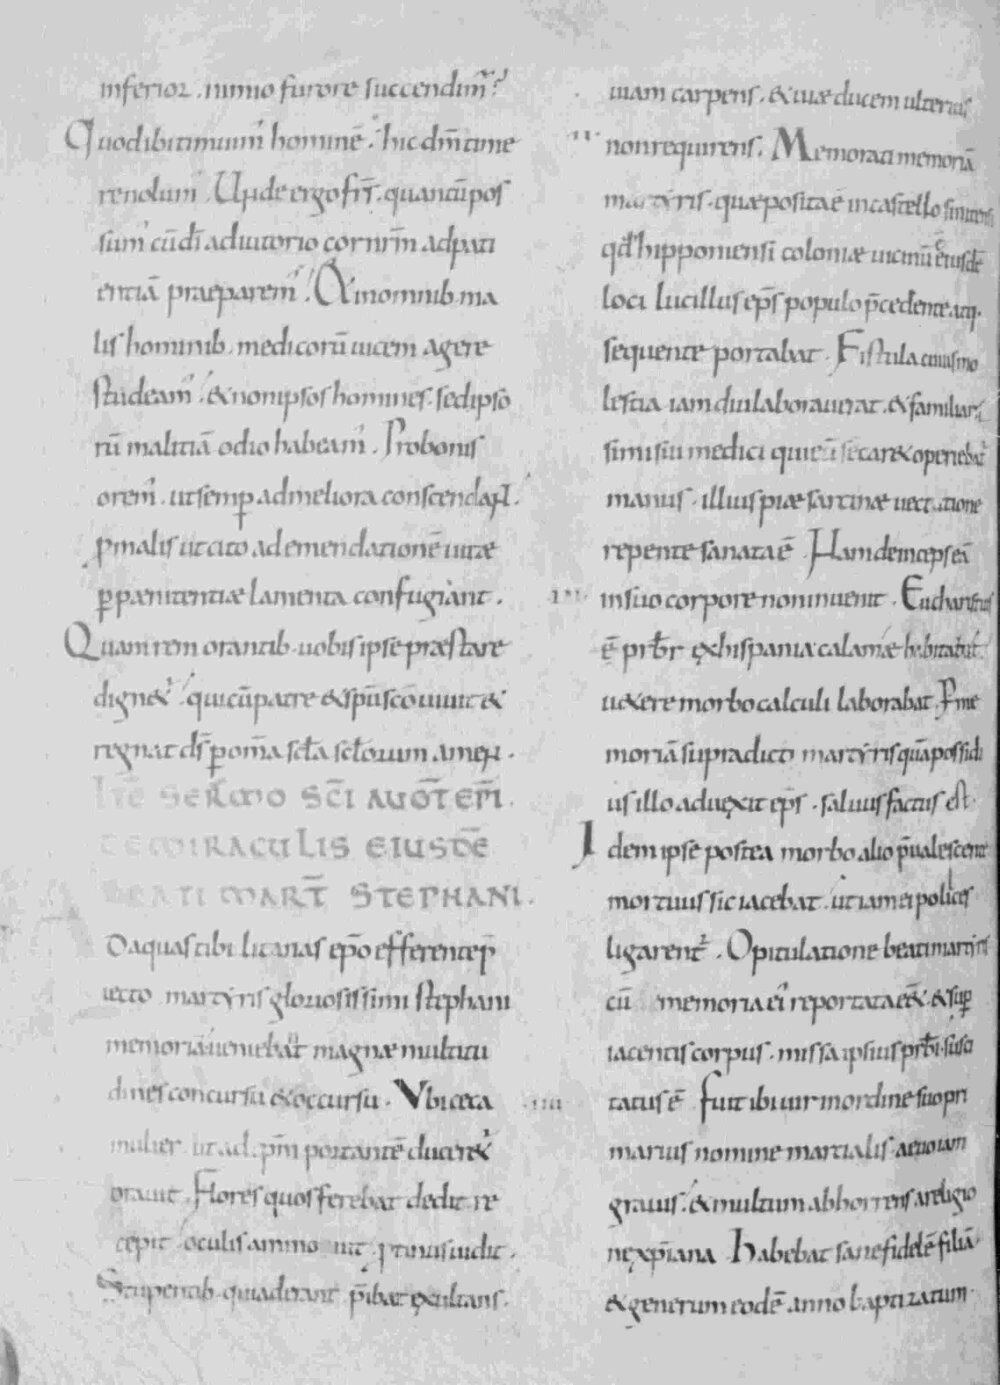 inferior . nimio furore succendim̄ ?
Quod ibi timuim̄ hominē . hic dn̄m time
rendum̄ . Unde ergo frs̄ . quantū pos
sum̄ cū dī adiutorio cor nr̄m ad pati
entiā praeparem̄ . & in omnib. ma
lis hominib. medicorū uicem agere
studeam̄ . & non ipsos homines . sed ipso
rū malitiā odio habeam̄ . Pro bonis
orem̄ . ut semp ad meliora conscendant .
p malis ut cito ad emendationē uitae
p pænitentiæ lamenta confugiant .
Quam rem orantib. uobis ipse præstare
dignet̄ . qui cū patre & sp̄u sc̄o uiuit &
regnat ds̄ p om̄a sc̄la sc̄lorum amen .
ITĒ SERMO SC̄I AUGT̄ EPĪ .
DE MIRACULIS EIUSDĒ
BEATI MART̄ STEPHANI .
AD aquas tibilitanas ep̄o efferente p
iecto martyris gloriosissimi stephani
memoriā ueniebat magnæ multitu
dines concursu & occursu . Ubi ceca
mulier ut ad ep̄m portantē duceret̄
orauit . Flores quos ferebat dedit . re
cepit oculis ammouit . p tinus uidit .
Stupentib. qui aderant p̄ibat exultans .
uiam carpens . & uiæ ducem ulterius
non requirens . Memorati memoriā
martyris . quæ posita ē in castello sinitensi
qd̄ hipponiensi coloniæ uicinū ē eiusdē
loci lucillus ep̄s populo p̄cedente atq.
sequente portabat . Fistula cuius mo
lestia iam diu laborauerat . & familiaris
simi sui medici qui eū secaret opperiebat̄
manus . illius piæ sarcinæ uectatione
repente sanata ē . Nam deinceps eā
in suo corpore non inuenit . Eucharius
ē prb̄r ex hispania . calamæ habitabat .
uetere morbo calculi laborabat . P me
moriā supradicti martyris quā possidi
us illo aduexit ep̄s . saluus factus est .
Idem ipse postea morbo alio p̄ualescente
mortuus sic iacebat . ut iam ei polices
ligarent̄ . Opitulatione beati martyris
cū memoria ei reportata eēt . & sup
iacentis corpus . missa ipsius prb̄i . susci
tatus ē . Fuit ibi uir in ordine suo pri
marius nomine martialis . aeuo iam
grauis . & multum abhorrens a religio
ne xp̄iana . Habebat sane fidelē filiā
& generum eodē anno baptizatum .